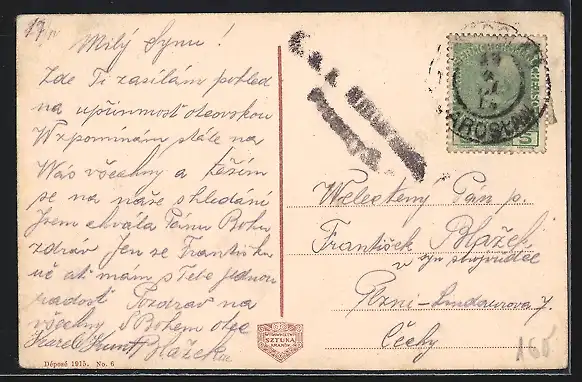 17/IV
Milý Synu!
Zde Ti zasílám pohled
na upřímnost otcovskou
Wzpomínám stále na
Wás všechny a těším
se na naše shledání
Jsem chvála Pánu Bohu
zdráv Jen se Františku
uč ať mám s Tebe jednou
radost Pozdrav na
všechny S Bohem otec
Blažek
Déposé 1915. No. 6
WYDAWNICTWO
SZTUKA
KRAKÓW
JAROSLAU
5
Welectěný Pán p.
František Blažek
Plzni-Lindaurova 7.
Čechy
160